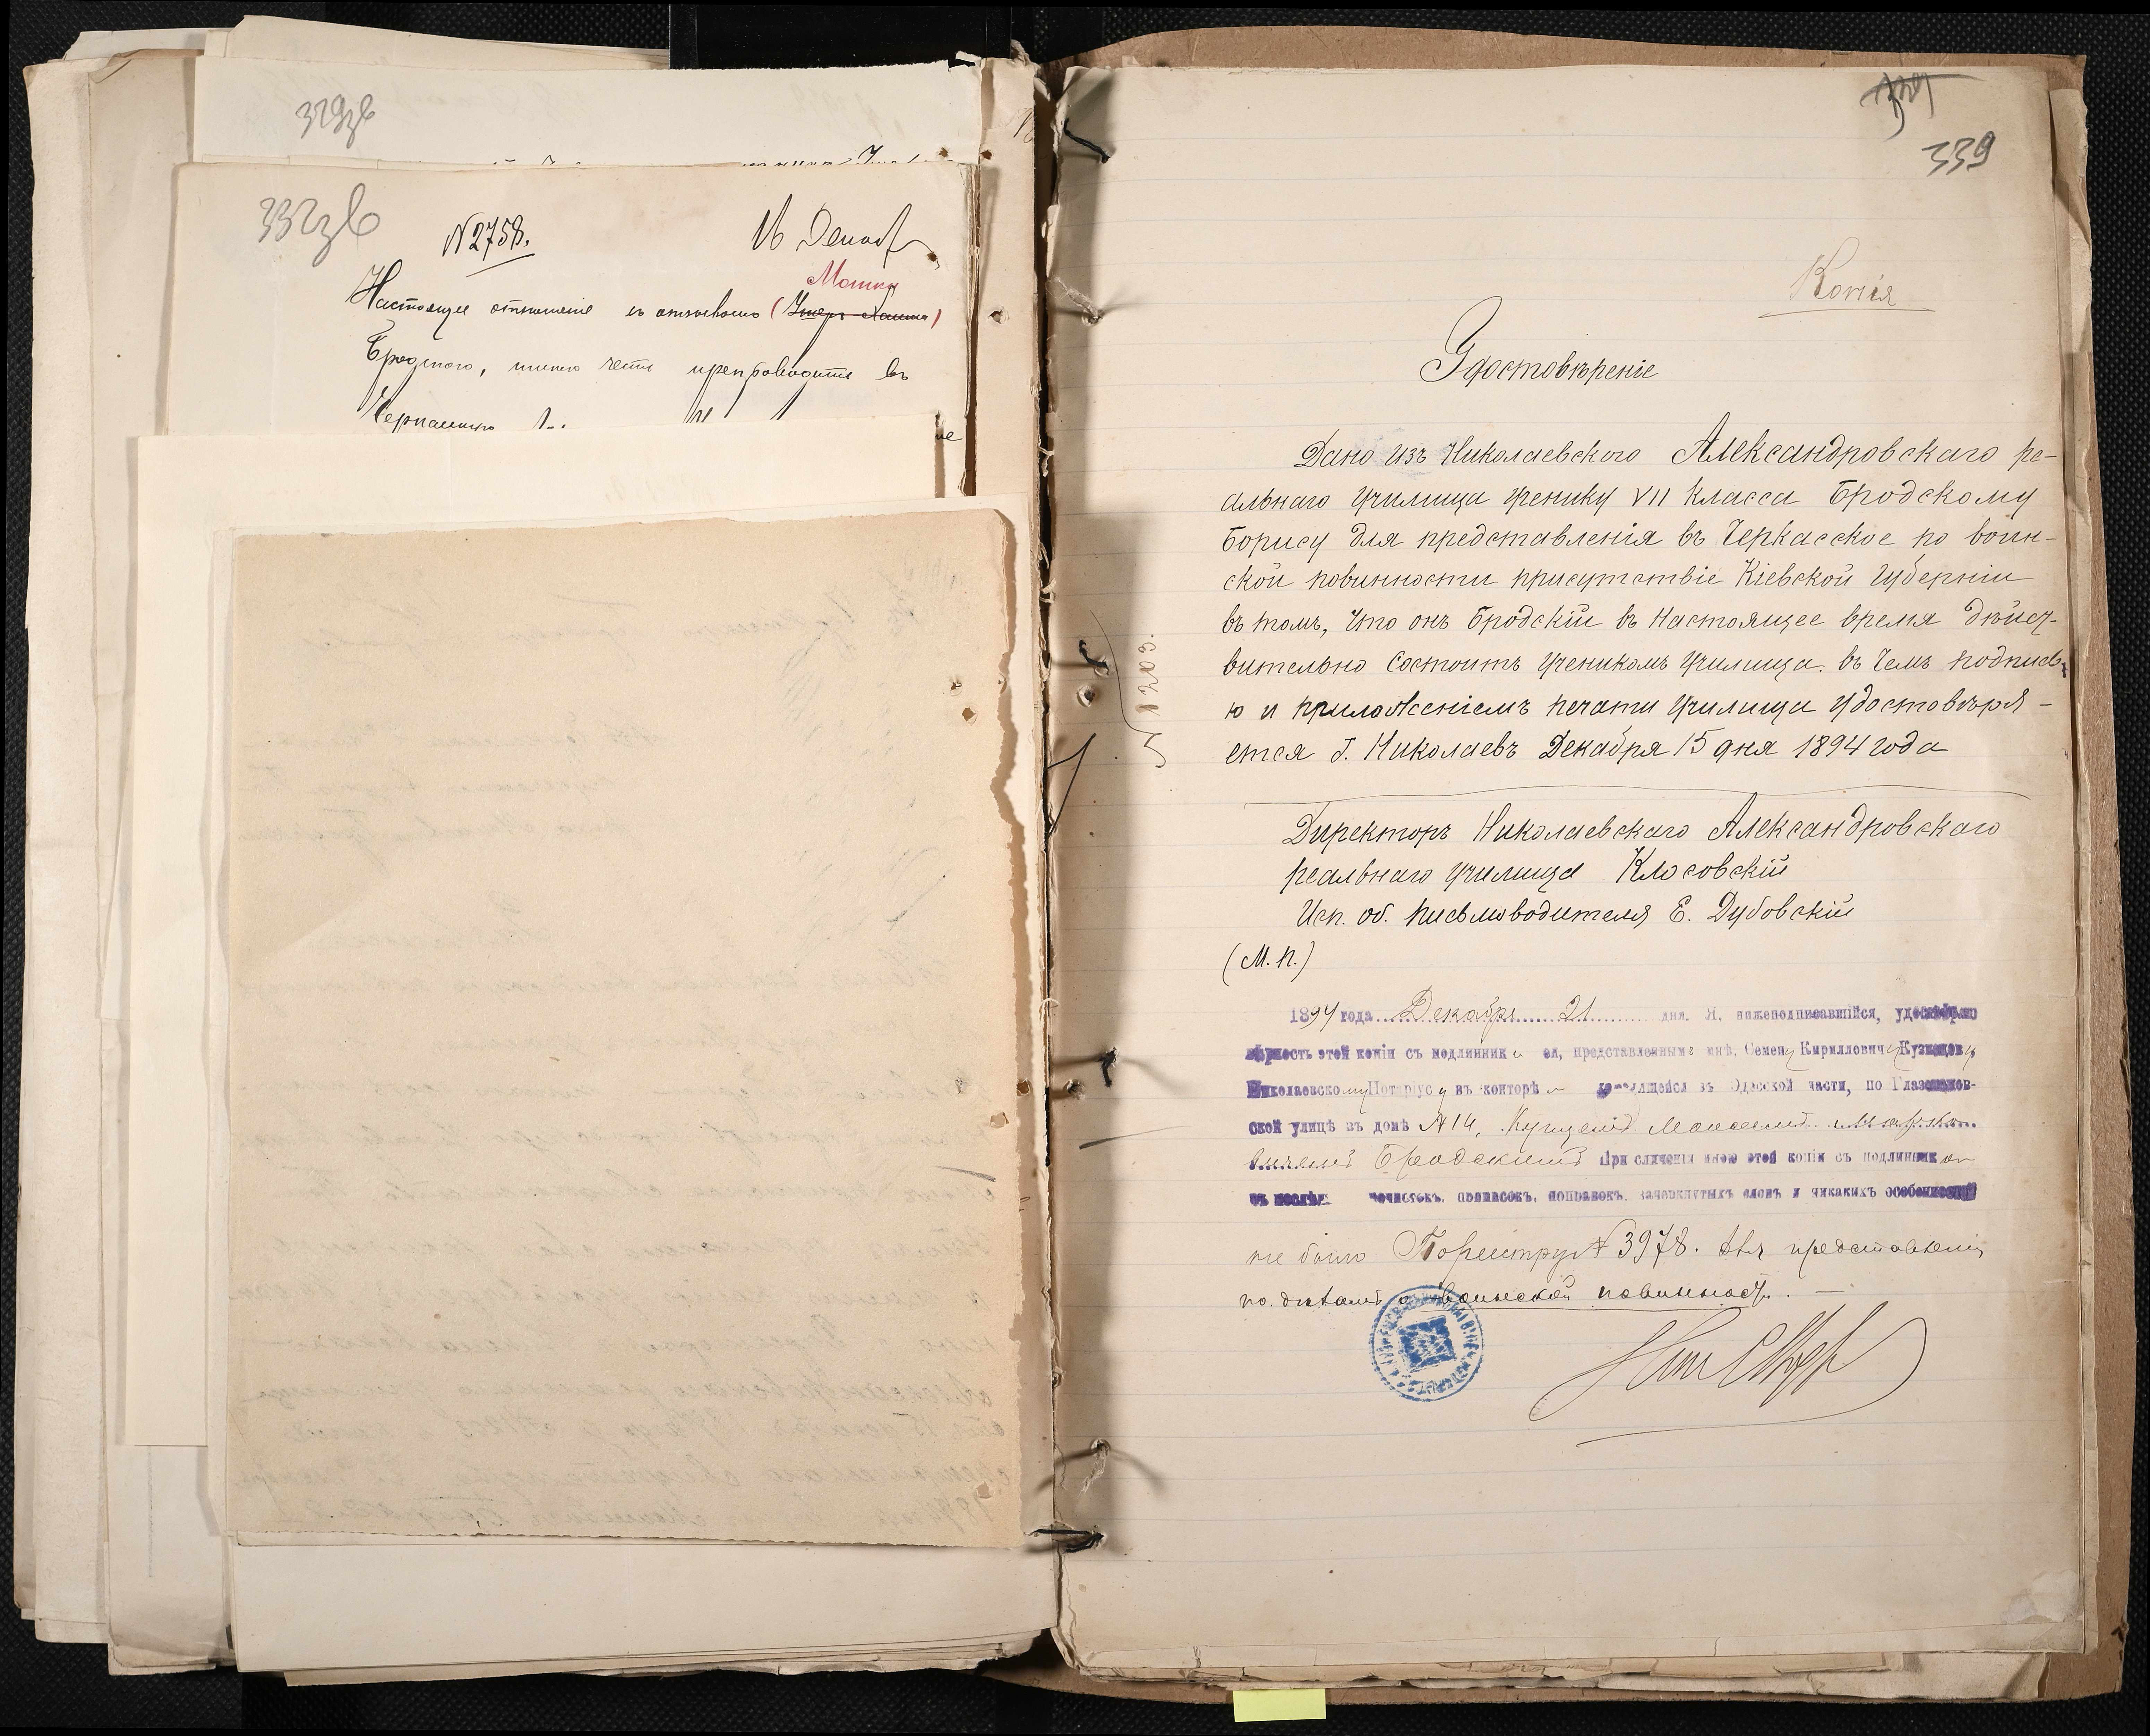 329зв
332зв
N 2758.
16 Декабр
Мошки
Настоящее отношение съ отзывомъ (
Бродскаго, имею честь препроводить въ
339
Копія
Удостовѣреніе
Дано изъ Николаевского Александровскаго ре-
альнаго училища ученику VII класса Бродскому
Борису для представленія въ Черкасское по воин-
ской повинности присутствіе Кіевской губерніи
въ томъ, что онъ Бродскій въ настоящее время дѣйст-
вительно состоитъ ученикомъ училища. въ чемъ подпись-
ю и приложеніемъ печати училища удостовѣря-
ется г. Николаевъ Декабря 15 дня 1894 года
N 1203.
Директоръ Николаевскаго Александровскаго
реальнаго училища Клосовскій
Исп. об. письмоводителя Е. Дубовскій
(М. П.)
1894 года Декабря 21 дня. Я, нижеподписавшійся, удостовѣряю
вѣрность этой копіи съ подлинникомъ ея, представленнымъ мнѣ, Семену Кирилловичу Кузнецову
Николаевскому Нотаріусу въ конторѣ находящейся въ Одесской части, по Глазенапов-
ской улицѣ въ домѣ N 14, Купцемъ Моисеемъ Марко-
вичемъ Бродскимъ При сличеніи мною этой копіи съ подлинникомъ
въ послѣд. почистокъ, приписокъ, поправокъ, зачеркнутыхъ словъ и никакихъ особенностей
не было По реестру N 3978. Для представленія
по дѣламъ о воинской повинности. —